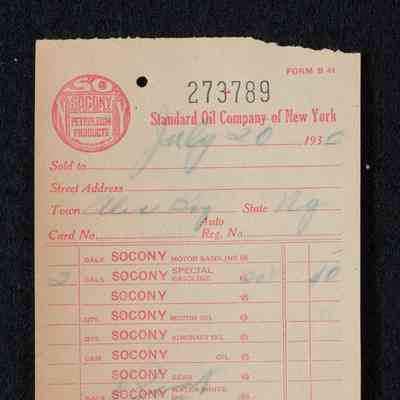 FORM B 44
SO
SOCONY
PETROLEUM
PRODUCTS
273789
Standard Oil Company of New York
July 20 1930
Sold to
Street Address
Town Alex Bay State Ny
Card No. Auto Reg. No.
GALS. SOCONY MOTOR GASOLINE @
2 GALS. SOCONY SPECIAL GASOLINE @ 20 40
SOCONY @
QTS. SOCONY MOTOR OIL @
QTS. SOCONY AIRCRAFT OIL @
CAN SOCONY OIL @
LBS. SOCONY GEAR @
GALS. SOCONY WATER WHITE @